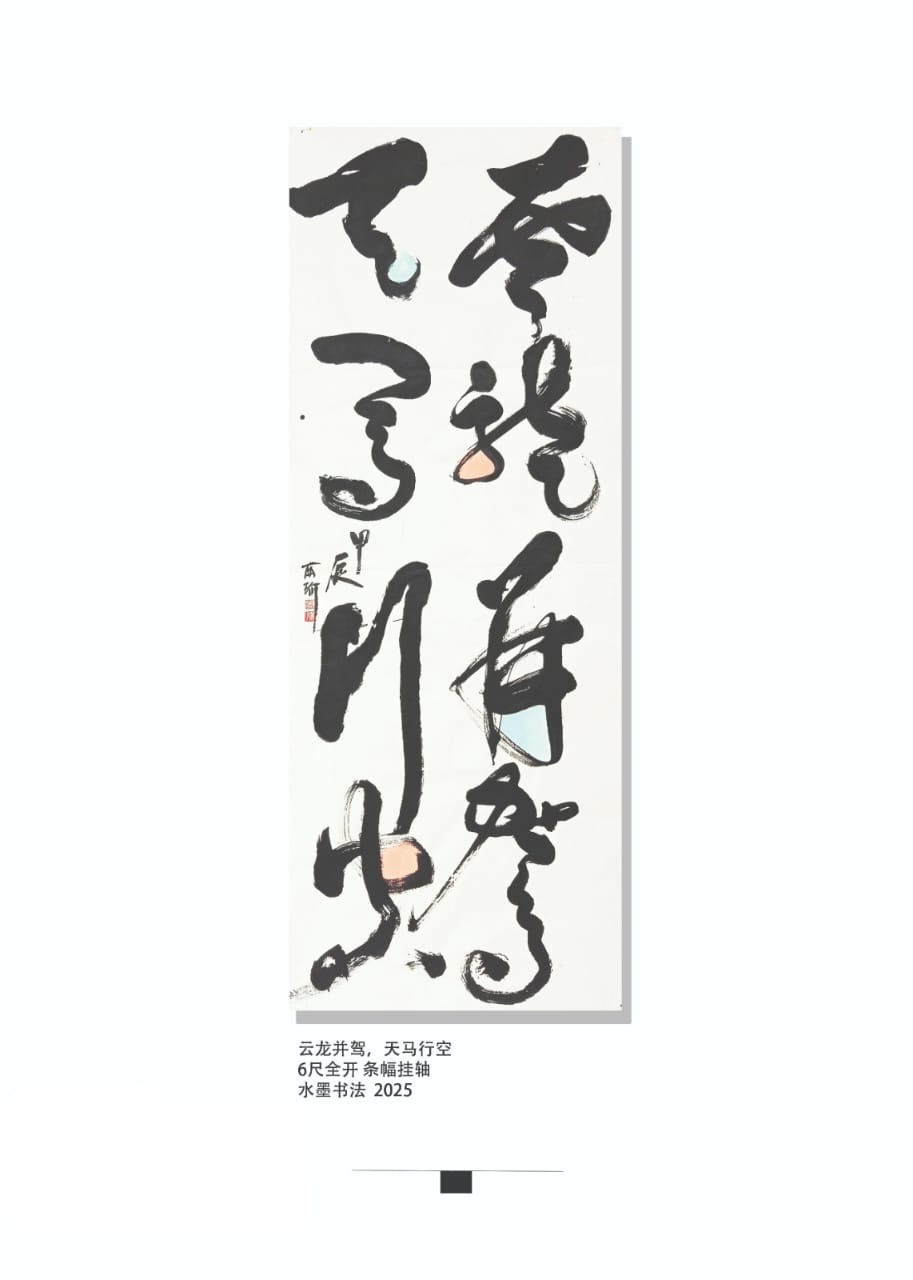 雲龍并駕
天馬行空
甲辰
云龙并驾，天马行空
6尺全开 条幅挂轴
水墨书法 2025